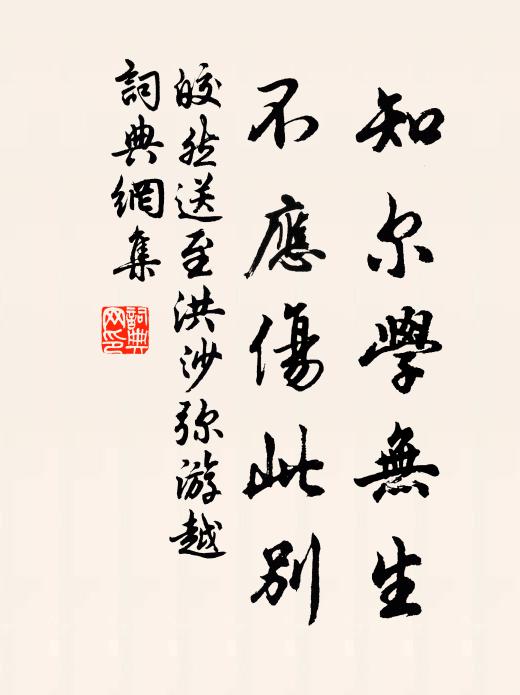 知尔學無生
不應傷此別
皎然送至洪沙弥游越
詞典網集
詞典
网印